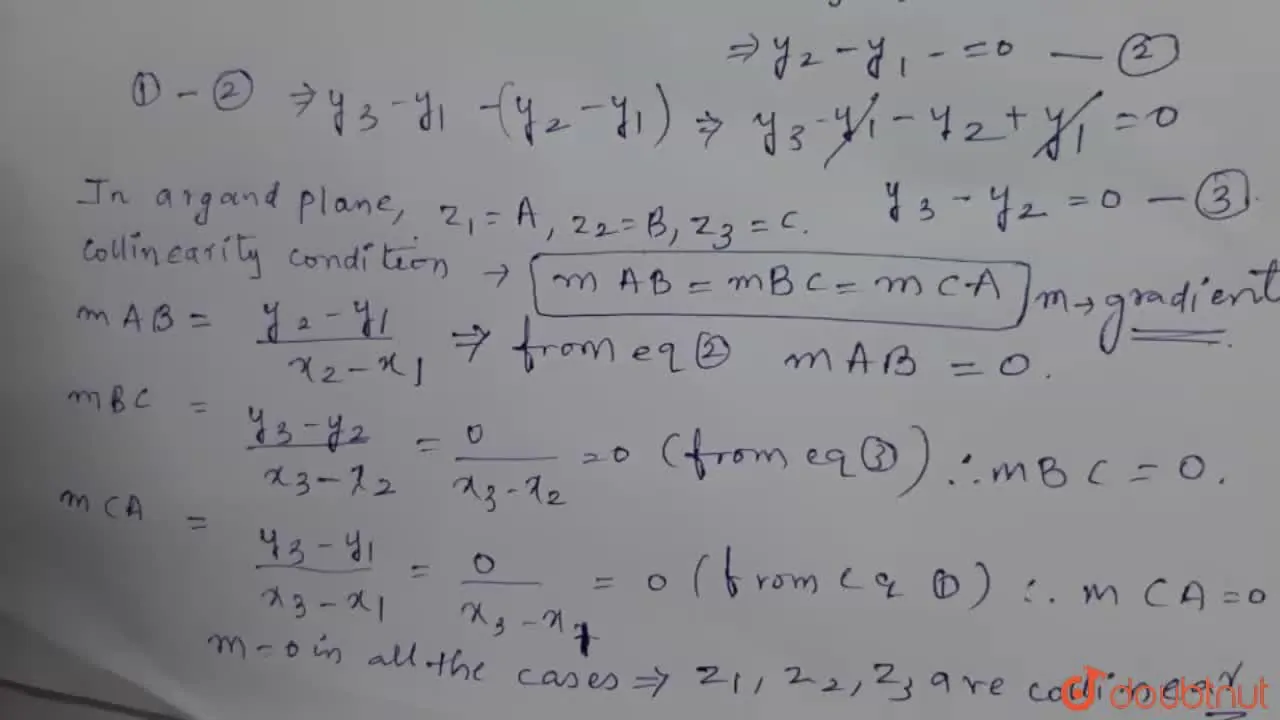 ⇒ y2 - y1 - = 0 — ②
① - ② ⇒ y3 - y1 - (y2 - y1) ⇒ y3 - y1 - y2 + y1 = 0
y3 - y2 = 0 — ③.
In argand plane, z1 = A, z2 = B, z3 = C.
collinearity condition → mAB = mBC = mCA m → gradient
mAB = (y2 - y1)/(x2 - x1) ⇒ from eq ② mAB = 0.
mBC = (y3 - y2)/(x3 - x2) = 0/(x3 - x2) = 0 (from eq ③) ∴ mBC = 0.
mCA = (y3 - y1)/(x3 - x1) = 0/(x3 - x1) = 0 (from eq ①) ∴ mCA = 0
m = 0 in all the cases ⇒ z1, z2, z3 are collinear
doubtnut